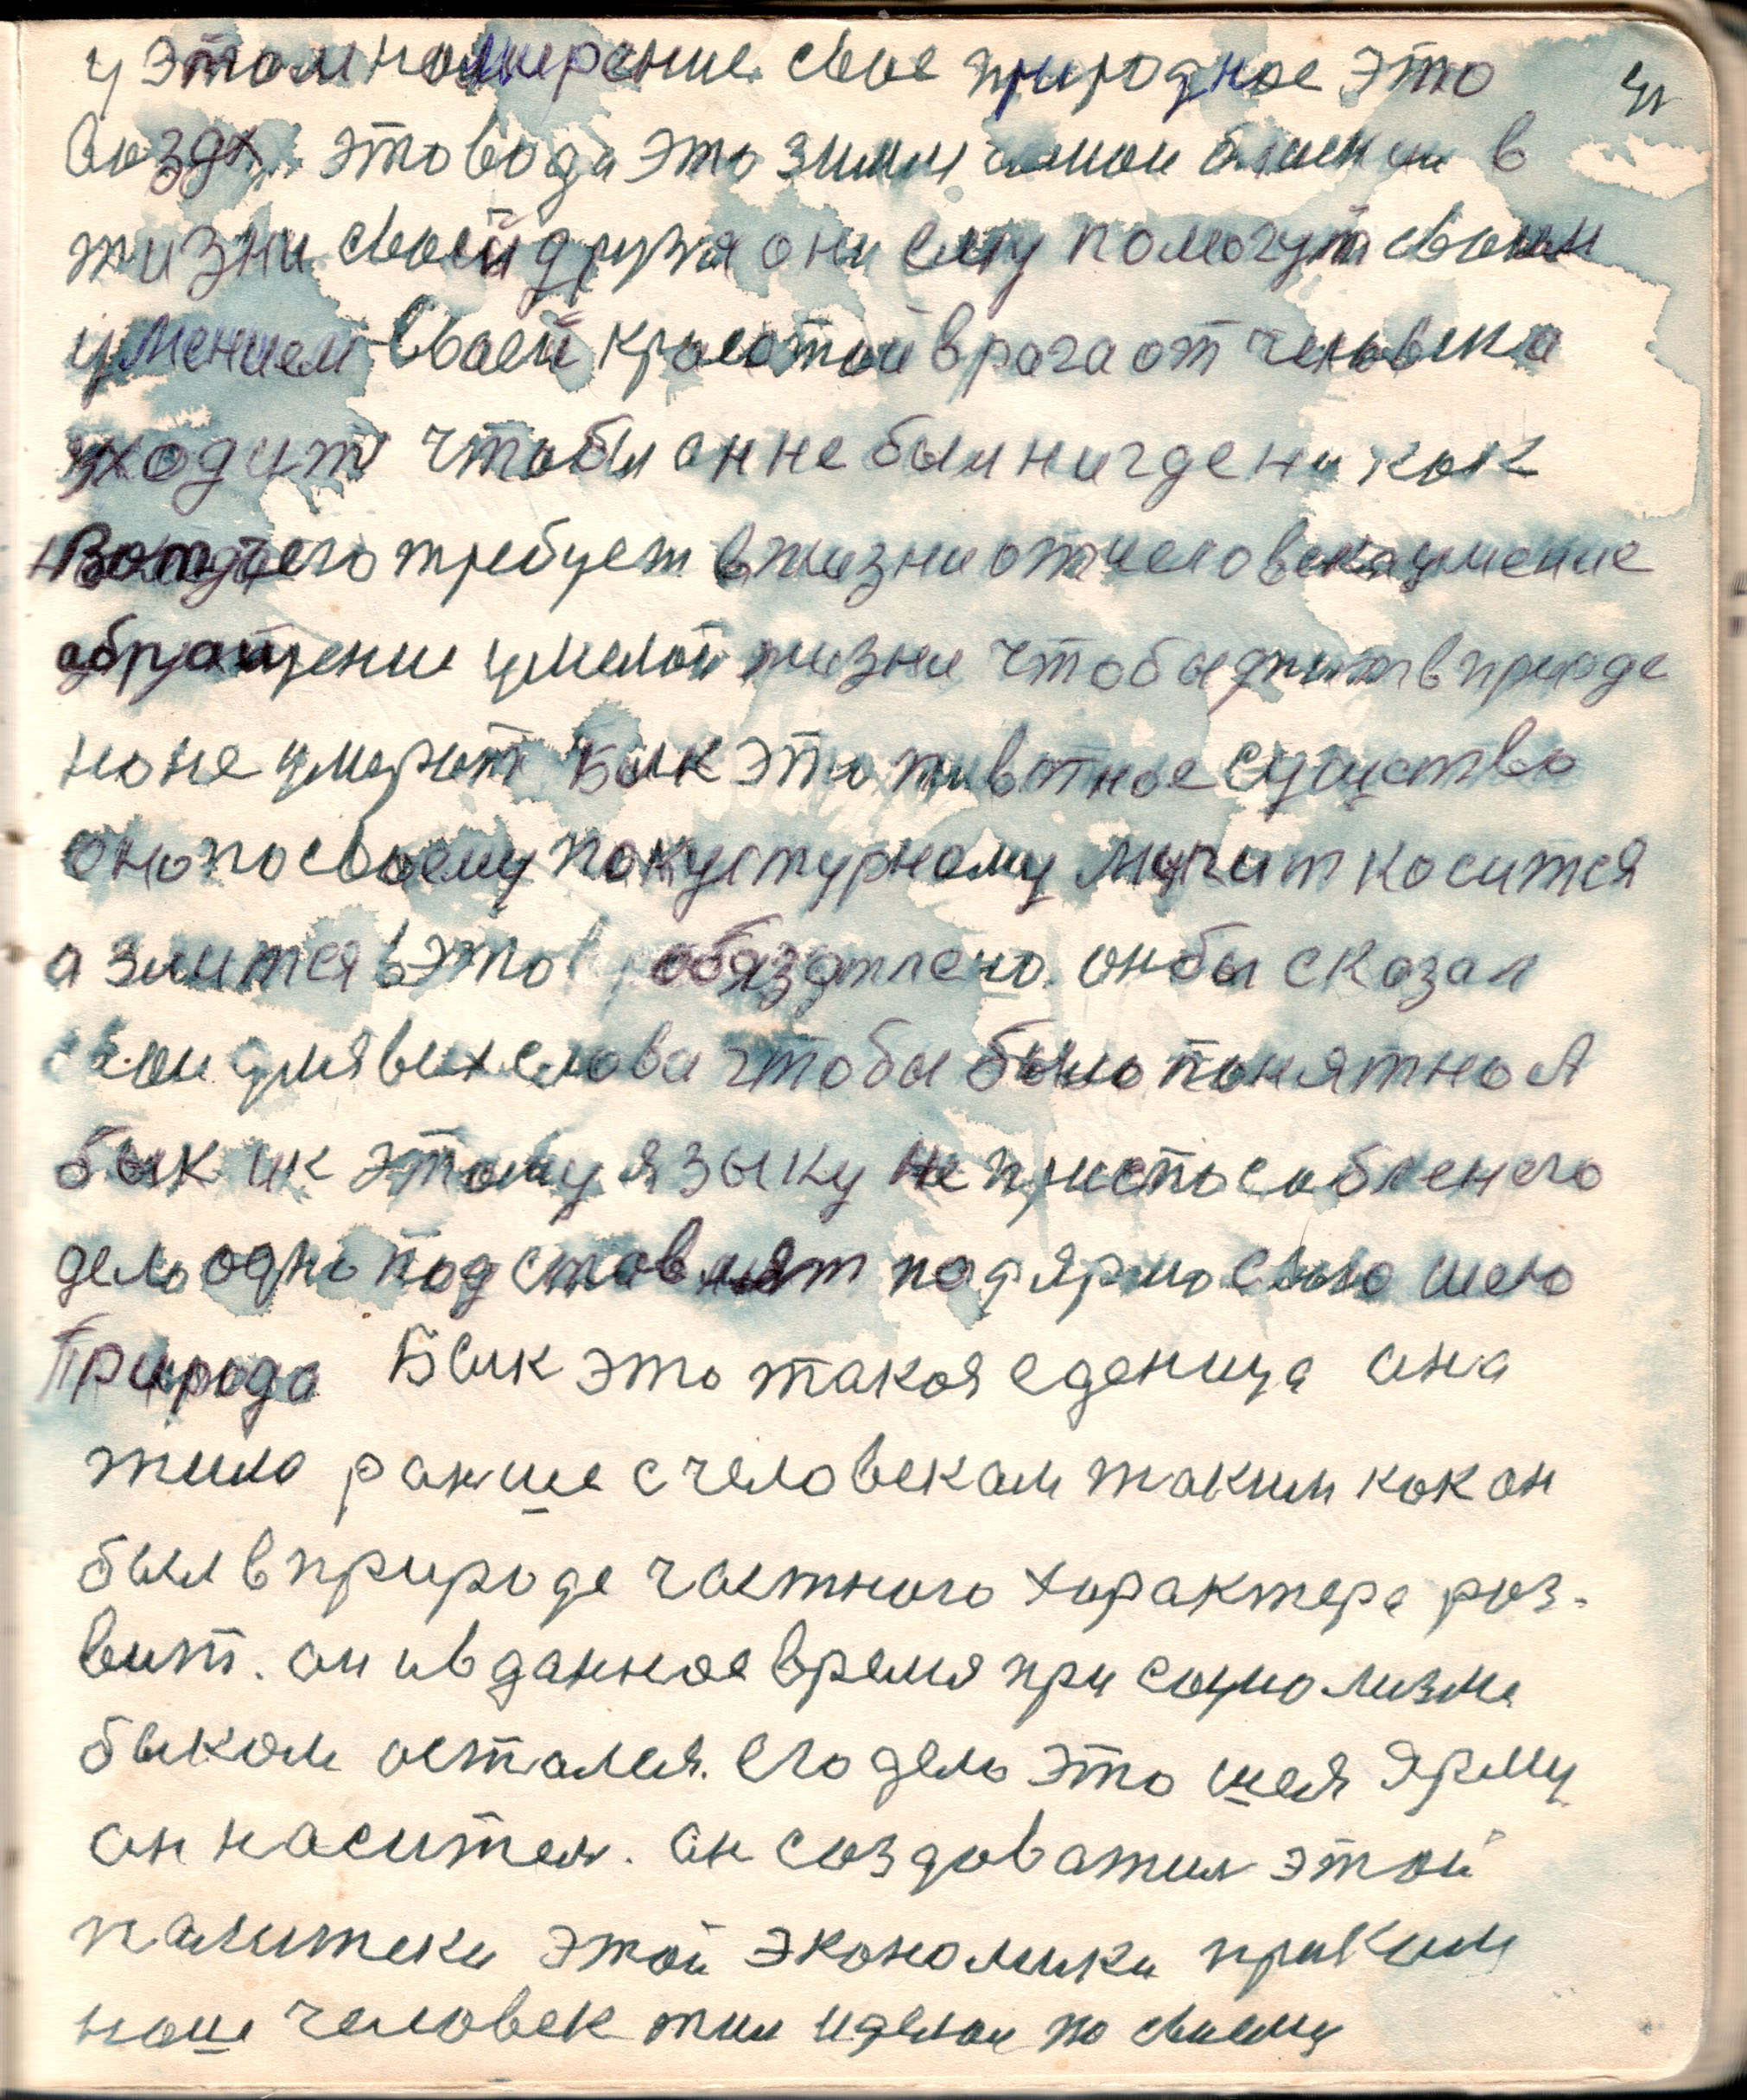 у этом намерение. свае природнае это
воздх. это вода это зимля самаи близкии в
жизни сваей друзя они ему помогут сваим
умением сваей красотой врага от человека
уходит чтобы он не был нигде никак
Вот чего требует в жизни от человека умение
обращение умелай жизни чтобы жить в природе
но не умерат Бык это животнае существо
оно по своему по культурнаму мучит косится
а злится в этом обязатлено. он бы сказал
свои для всех слова чтобы было понятно А
бык ик этому языку не приспособлен его
дело одно подставлят под ярмо сваю шею
Природа Бык это такоя еденица она
жила ранше с человекам таким как он
был в природе частного характера роз-
вит. он и в даннае время при социализме
быком остался. его дело это шея ярму
он наситель. он создоватил этой
палитики этой экономики при ким
наш человек жил и делал по своему